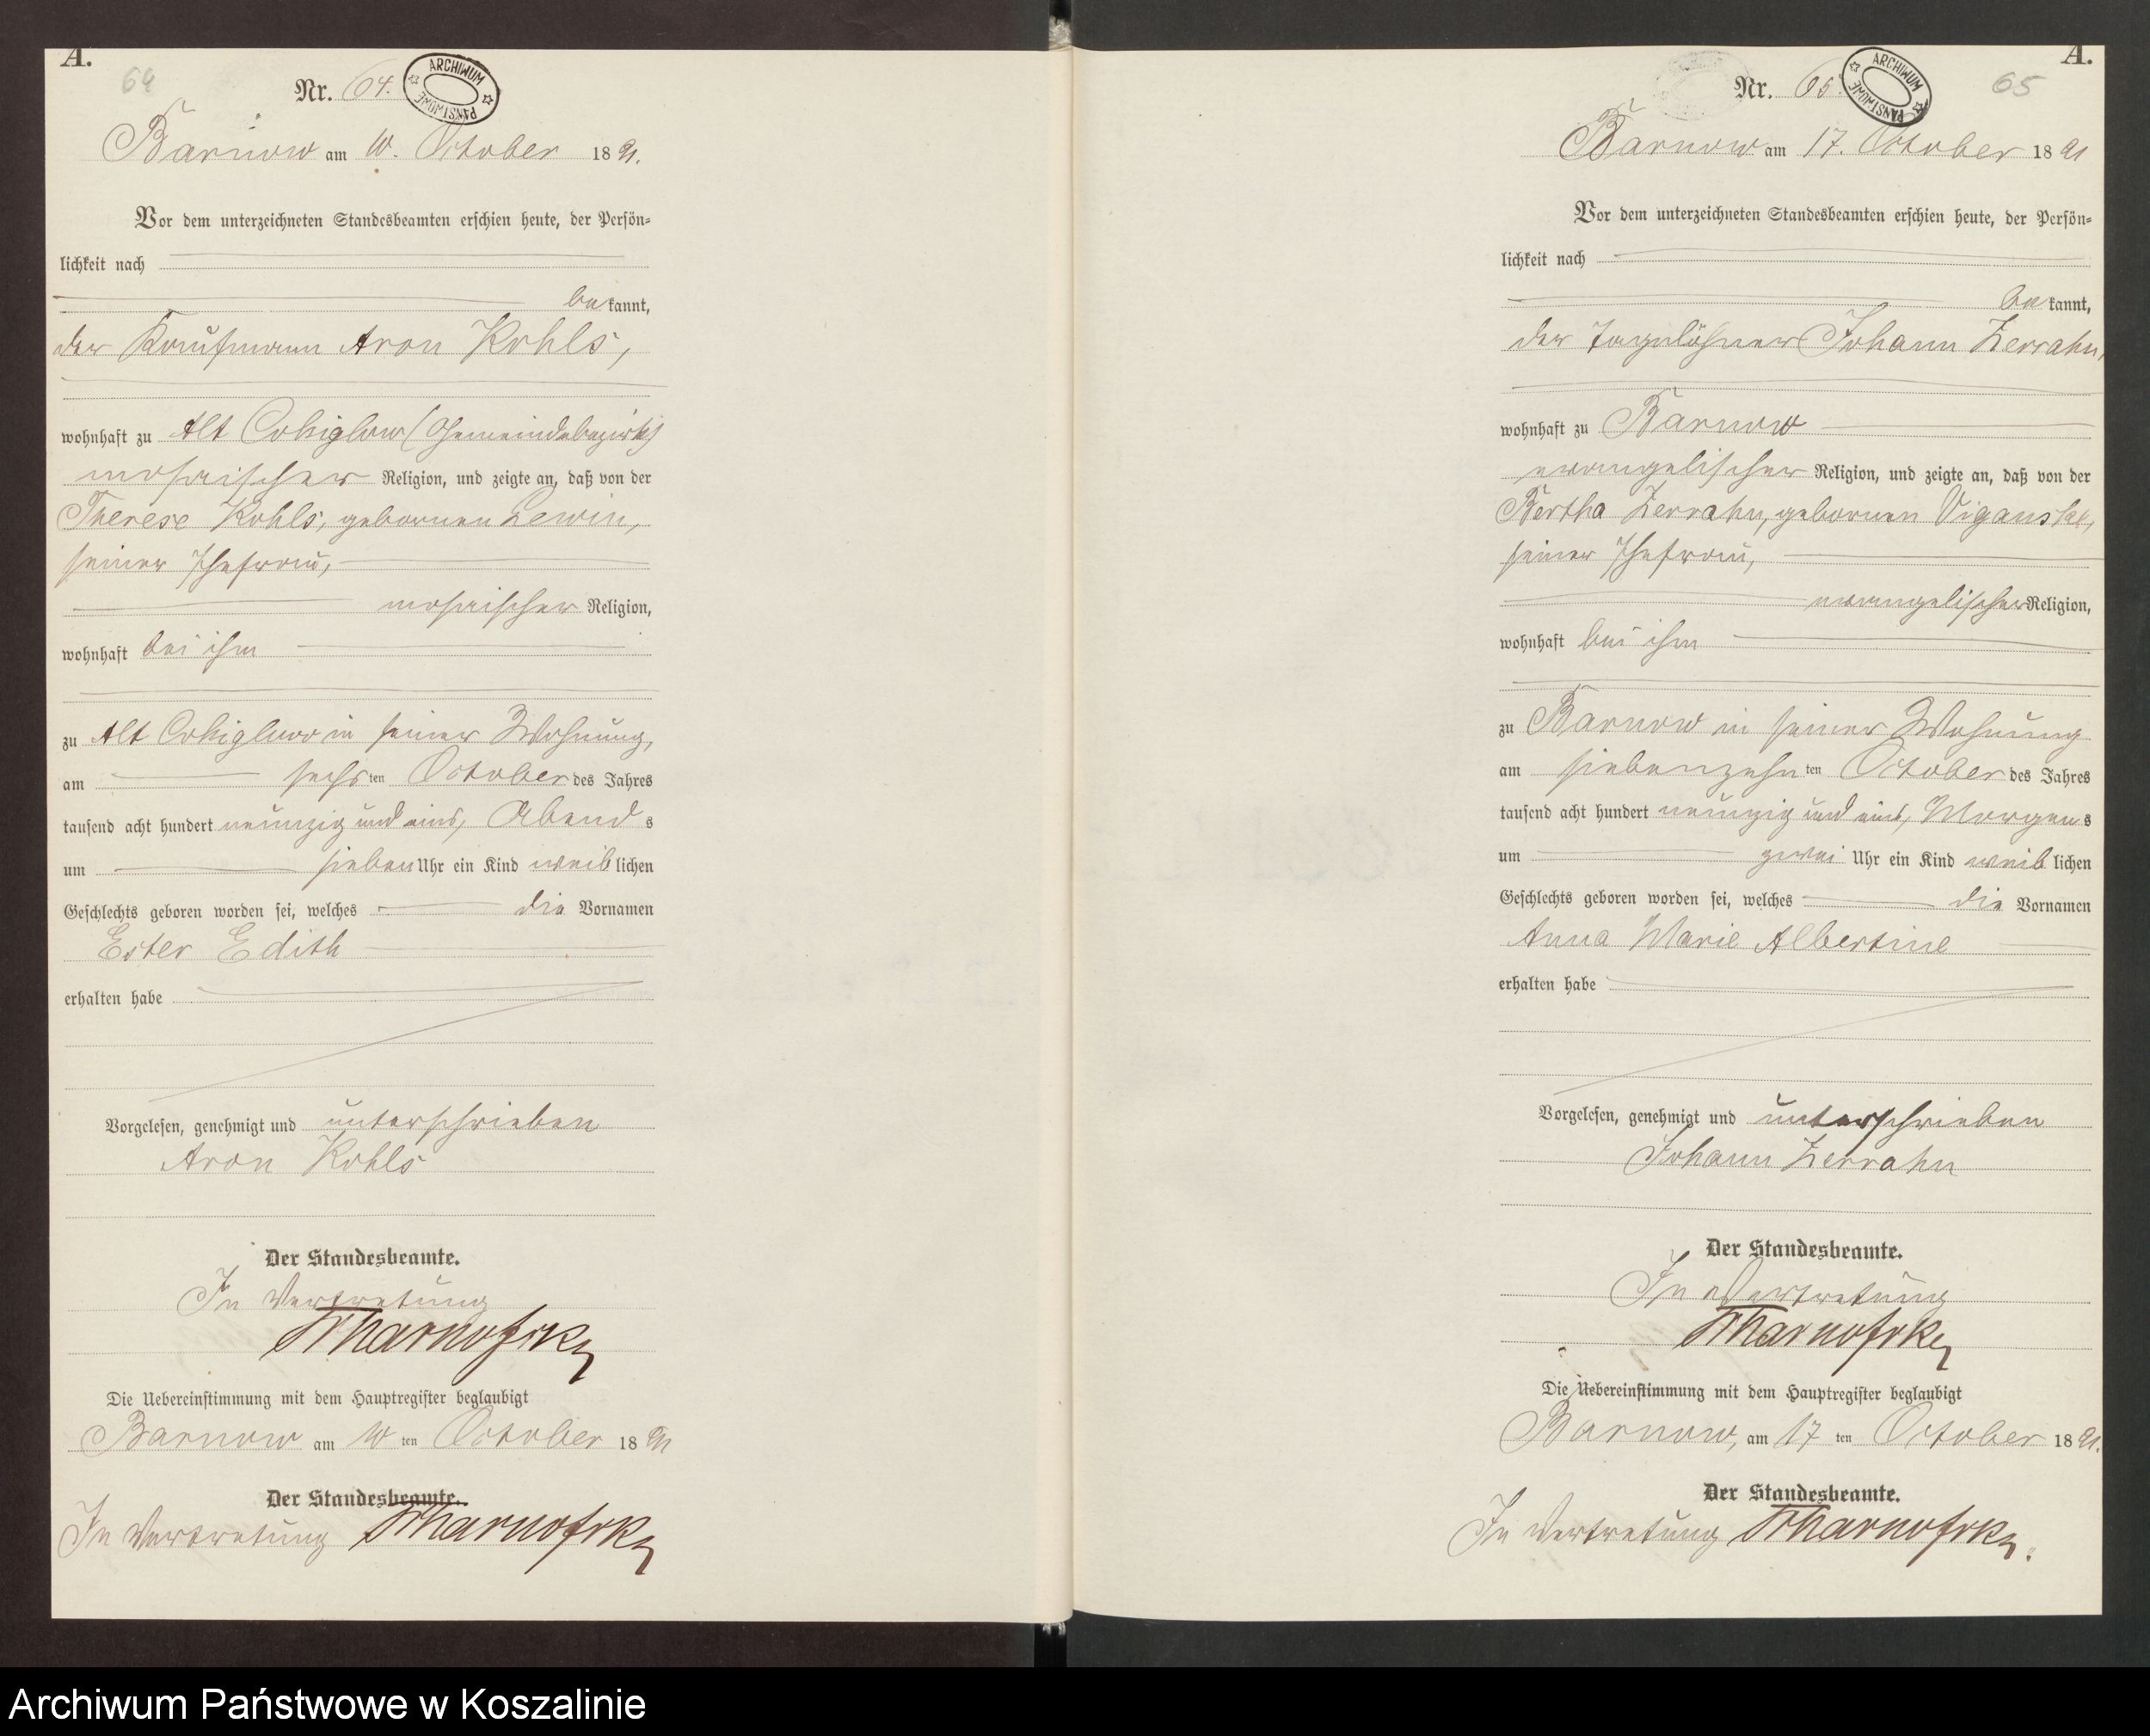 A.
64
Nr. 64.
ARCHIWUM PAŃSTWOWE
Barnow am 10. October 1891.
Vor dem unterzeichneten Standesbeamten erschien heute, der Persön-
lichkeit nach
bekannt,
der Kaufmann Aron Kohls,
wohnhaft zu Alt (Gemeindebezirk)
mosaischer Religion, und zeigte an, daß von der
Therese Kohls, gebornen Lewin,
seiner Ehefrau,
mosaischer Religion,
wohnhaft bei ihm
zu Alt in seiner Wohnung,
am sechsten October des Jahres
tausend acht hundert neunzig und eins, Abends
um sieben Uhr ein Kind weiblichen
Geschlechts geboren worden sei, welches die Vornamen
Ester Edith
erhalten habe
Vorgelesen, genehmigt und unterschrieben
Aron Kohls
Der Standesbeamte.
In Vertretung
Die Uebereinstimmung mit dem Hauptregister beglaubigt
Barnow am 10ten October 1891
Der Standesbeamte.
In Vertretung
A.
65
Nr. 65.
ARCHIWUM PAŃSTWOWE
Barnow am 17. October 1891
Vor dem unterzeichneten Standesbeamten erschien heute, der Persön-
lichkeit nach
bekannt,
der Tagelöhner Johann Zerrahn,
wohnhaft zu Barnow
evangelischer Religion, und zeigte an, daß von der
Bertha Zerrahn, gebornen Viganske,
seiner Ehefrau,
evangelischer Religion,
wohnhaft bei ihm
zu Barnow in seiner Wohnung
am siebenzehnten October des Jahres
tausend acht hundert neunzig und eins, Morgens
um zwei Uhr ein Kind weiblichen
Geschlechts geboren worden sei, welches die Vornamen
Anna Marie Albertine
erhalten habe
Vorgelesen, genehmigt und unterschrieben
Johann Zerrahn
Der Standesbeamte.
In Vertretung
Die Uebereinstimmung mit dem Hauptregister beglaubigt
Barnow, am 17ten October 1891.
Der Standesbeamte.
In Vertretung
Archiwum Państwowe w Koszalinie